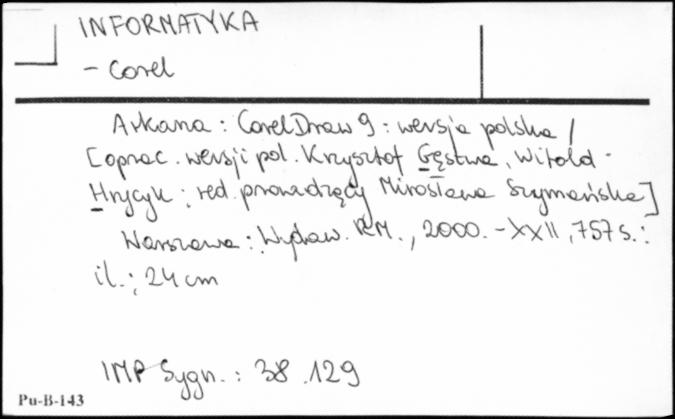 INFORMATYKA
- Corel
Arkana : CorelDraw 9 : wersja polska /
[oprac. wersji pol. Krzysztof Gęstwa, Witold
Hrycyk ; red. prowadzący Mirosława Szymańska]
Warszawa : Wydaw. RM., 2000. - XXII, 757 s. :
il. ; 24 cm
IMP Sygn. : 38.129
Pu-B-143